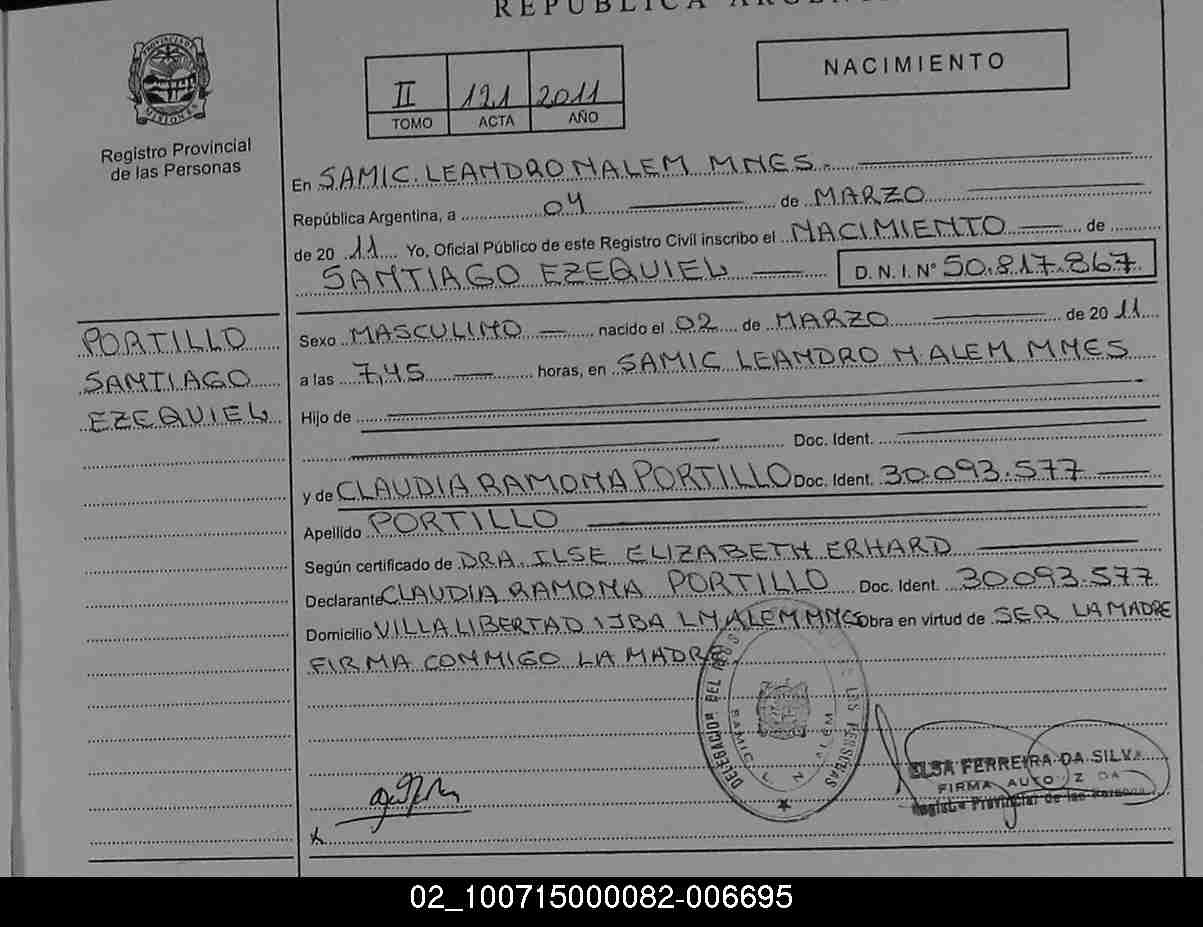 REPÚBLICA
PROVINCIA DE
MISIONES
Registro Provincial
de las Personas
II 121 2011
TOMO ACTA AÑO
NACIMIENTO
En SAMIC. LEANDRO N ALEM MNES.
República Argentina, a 04 de MARZO
de 20 11 Yo, Oficial Público de este Registro Civil inscribo el NACIMIENTO de
SANTIAGO EZEQUIEL D. N. I. N° 50.817.867
PORTILLO
SANTIAGO
EZEQUIEL
Sexo MASCULINO nacido el 02 de MARZO de 20 11
a las 7,45 horas, en SAMIC LEANDRO N. ALEM MNES
Hijo de
Doc. Ident.
y de CLAUDIA RAMONA PORTILLO Doc. Ident. 30.093.577
Apellido PORTILLO
Según certificado de DRA. ILSE ELIZABETH ERHARD
Declarante CLAUDIA RAMONA PORTILLO Doc. Ident. 30093.577
Domicilio VILLA LIBERTAD LN ALEM MNES Obra en virtud de SER LA MADRE
FIRMA CONMIGO LA MADRE.
DELEGACION DEL REG. DE LAS PERSONAS
SAMIC L N ALEM
ELSA FERREIRA DA SILVA
FIRMA AUTORIZADA
Registro Provincial de las Personas
X
02_100715000082-006695